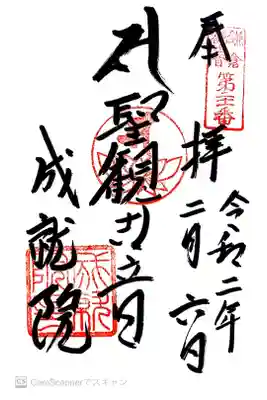 鎌倉
奉拝
令和二年
二月六日
聖観世音
成就院
CS CamScannerでスキャン